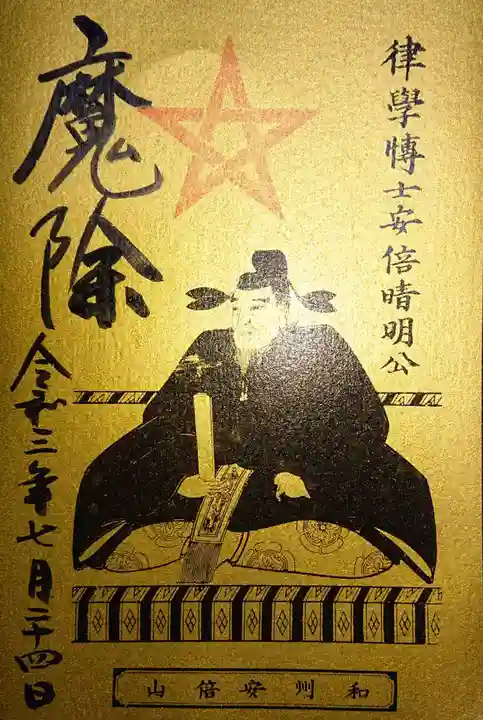 律學博士安倍晴明公
魔除
令和三年七月二十四日
和州安倍山